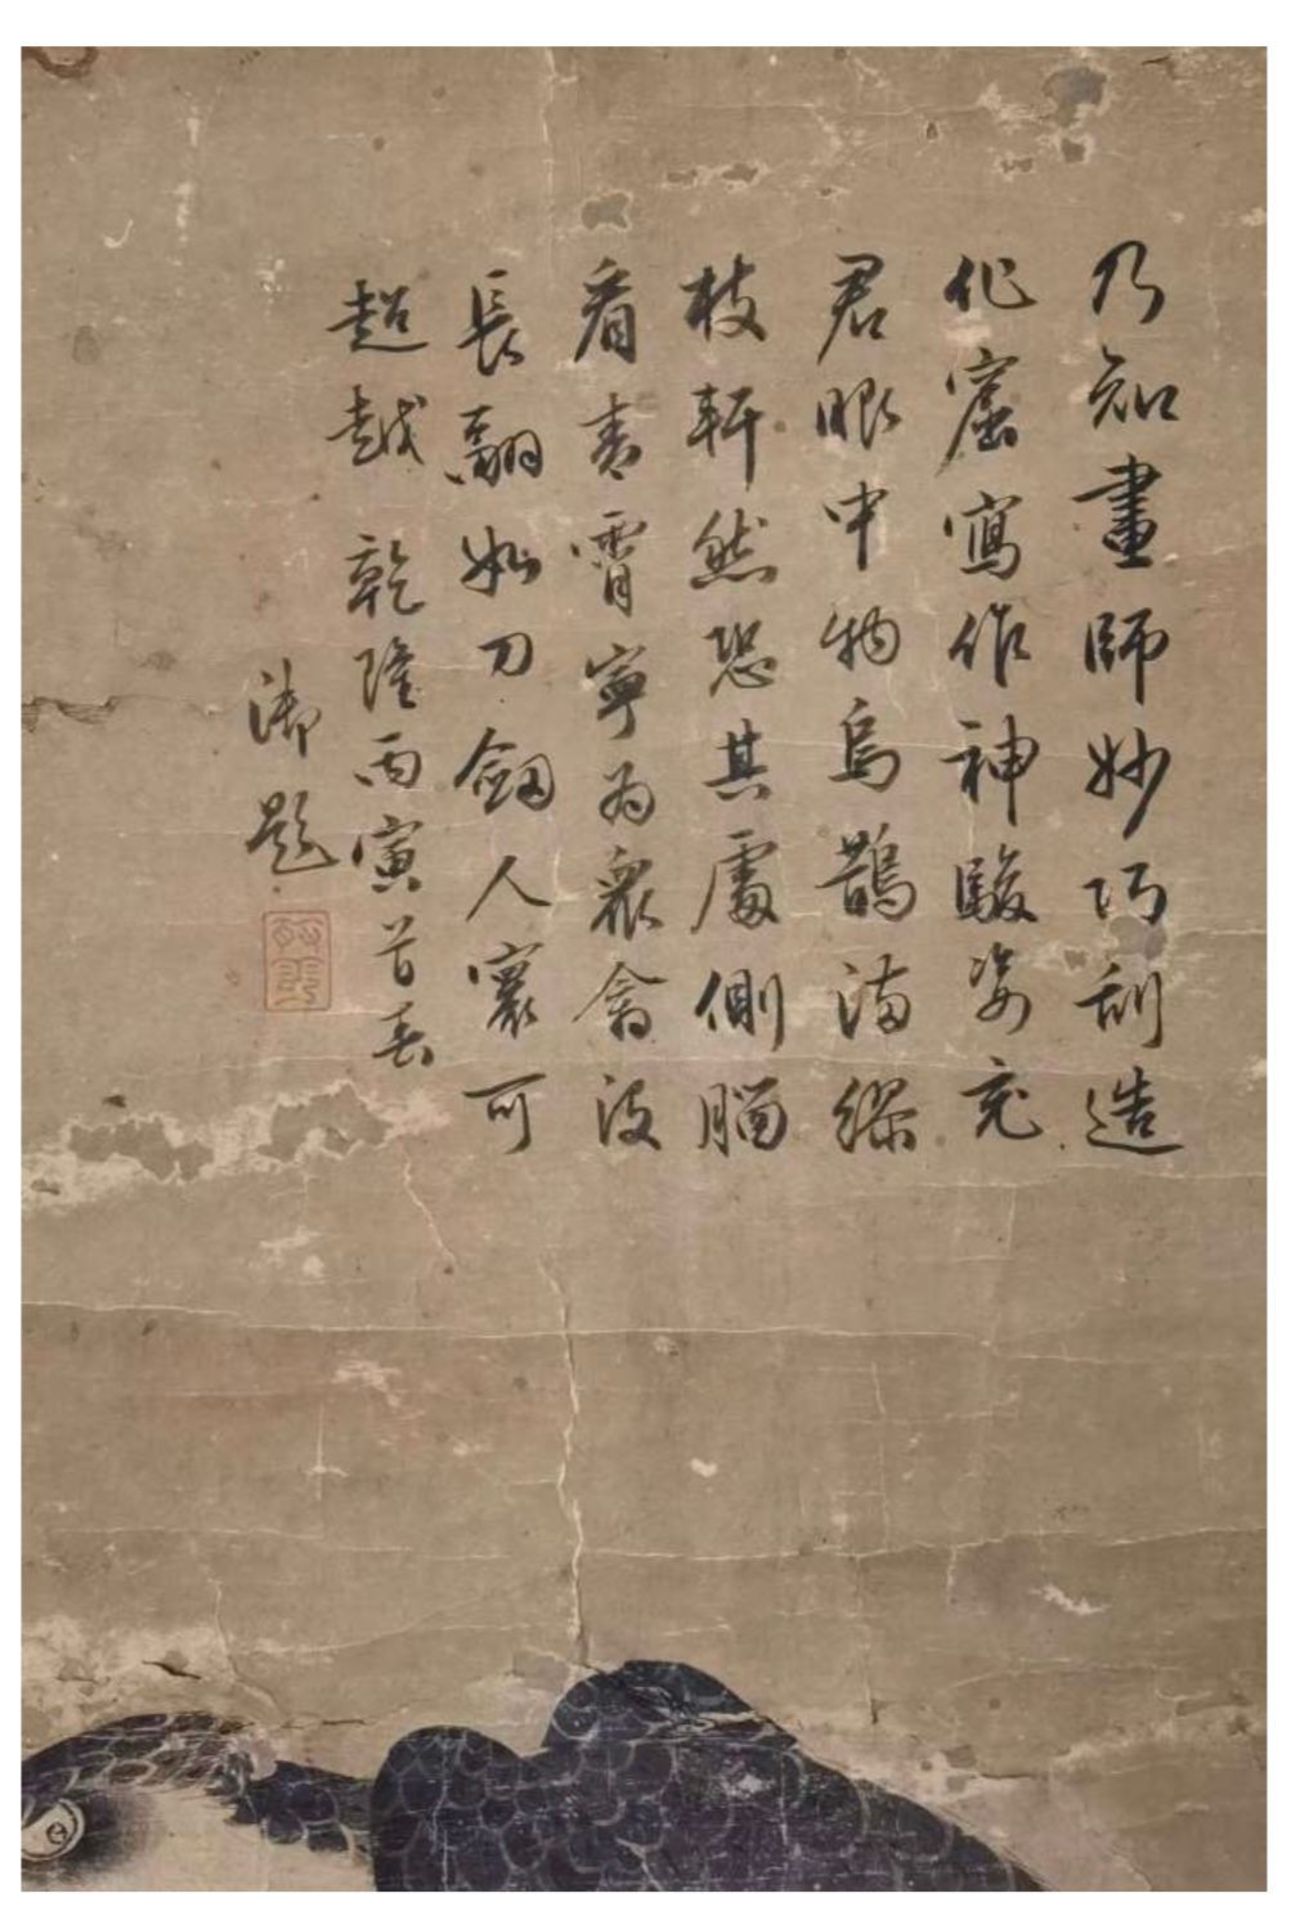 乃知畫師妙巧刮造
化窟寫作神駿姿充
君眼中物烏鵲滿樛
枝軒然恐其出側腦
看青霄寧為衆禽没
長翮如刀劔人寰可
超越 乾隆丙寅首春
御題